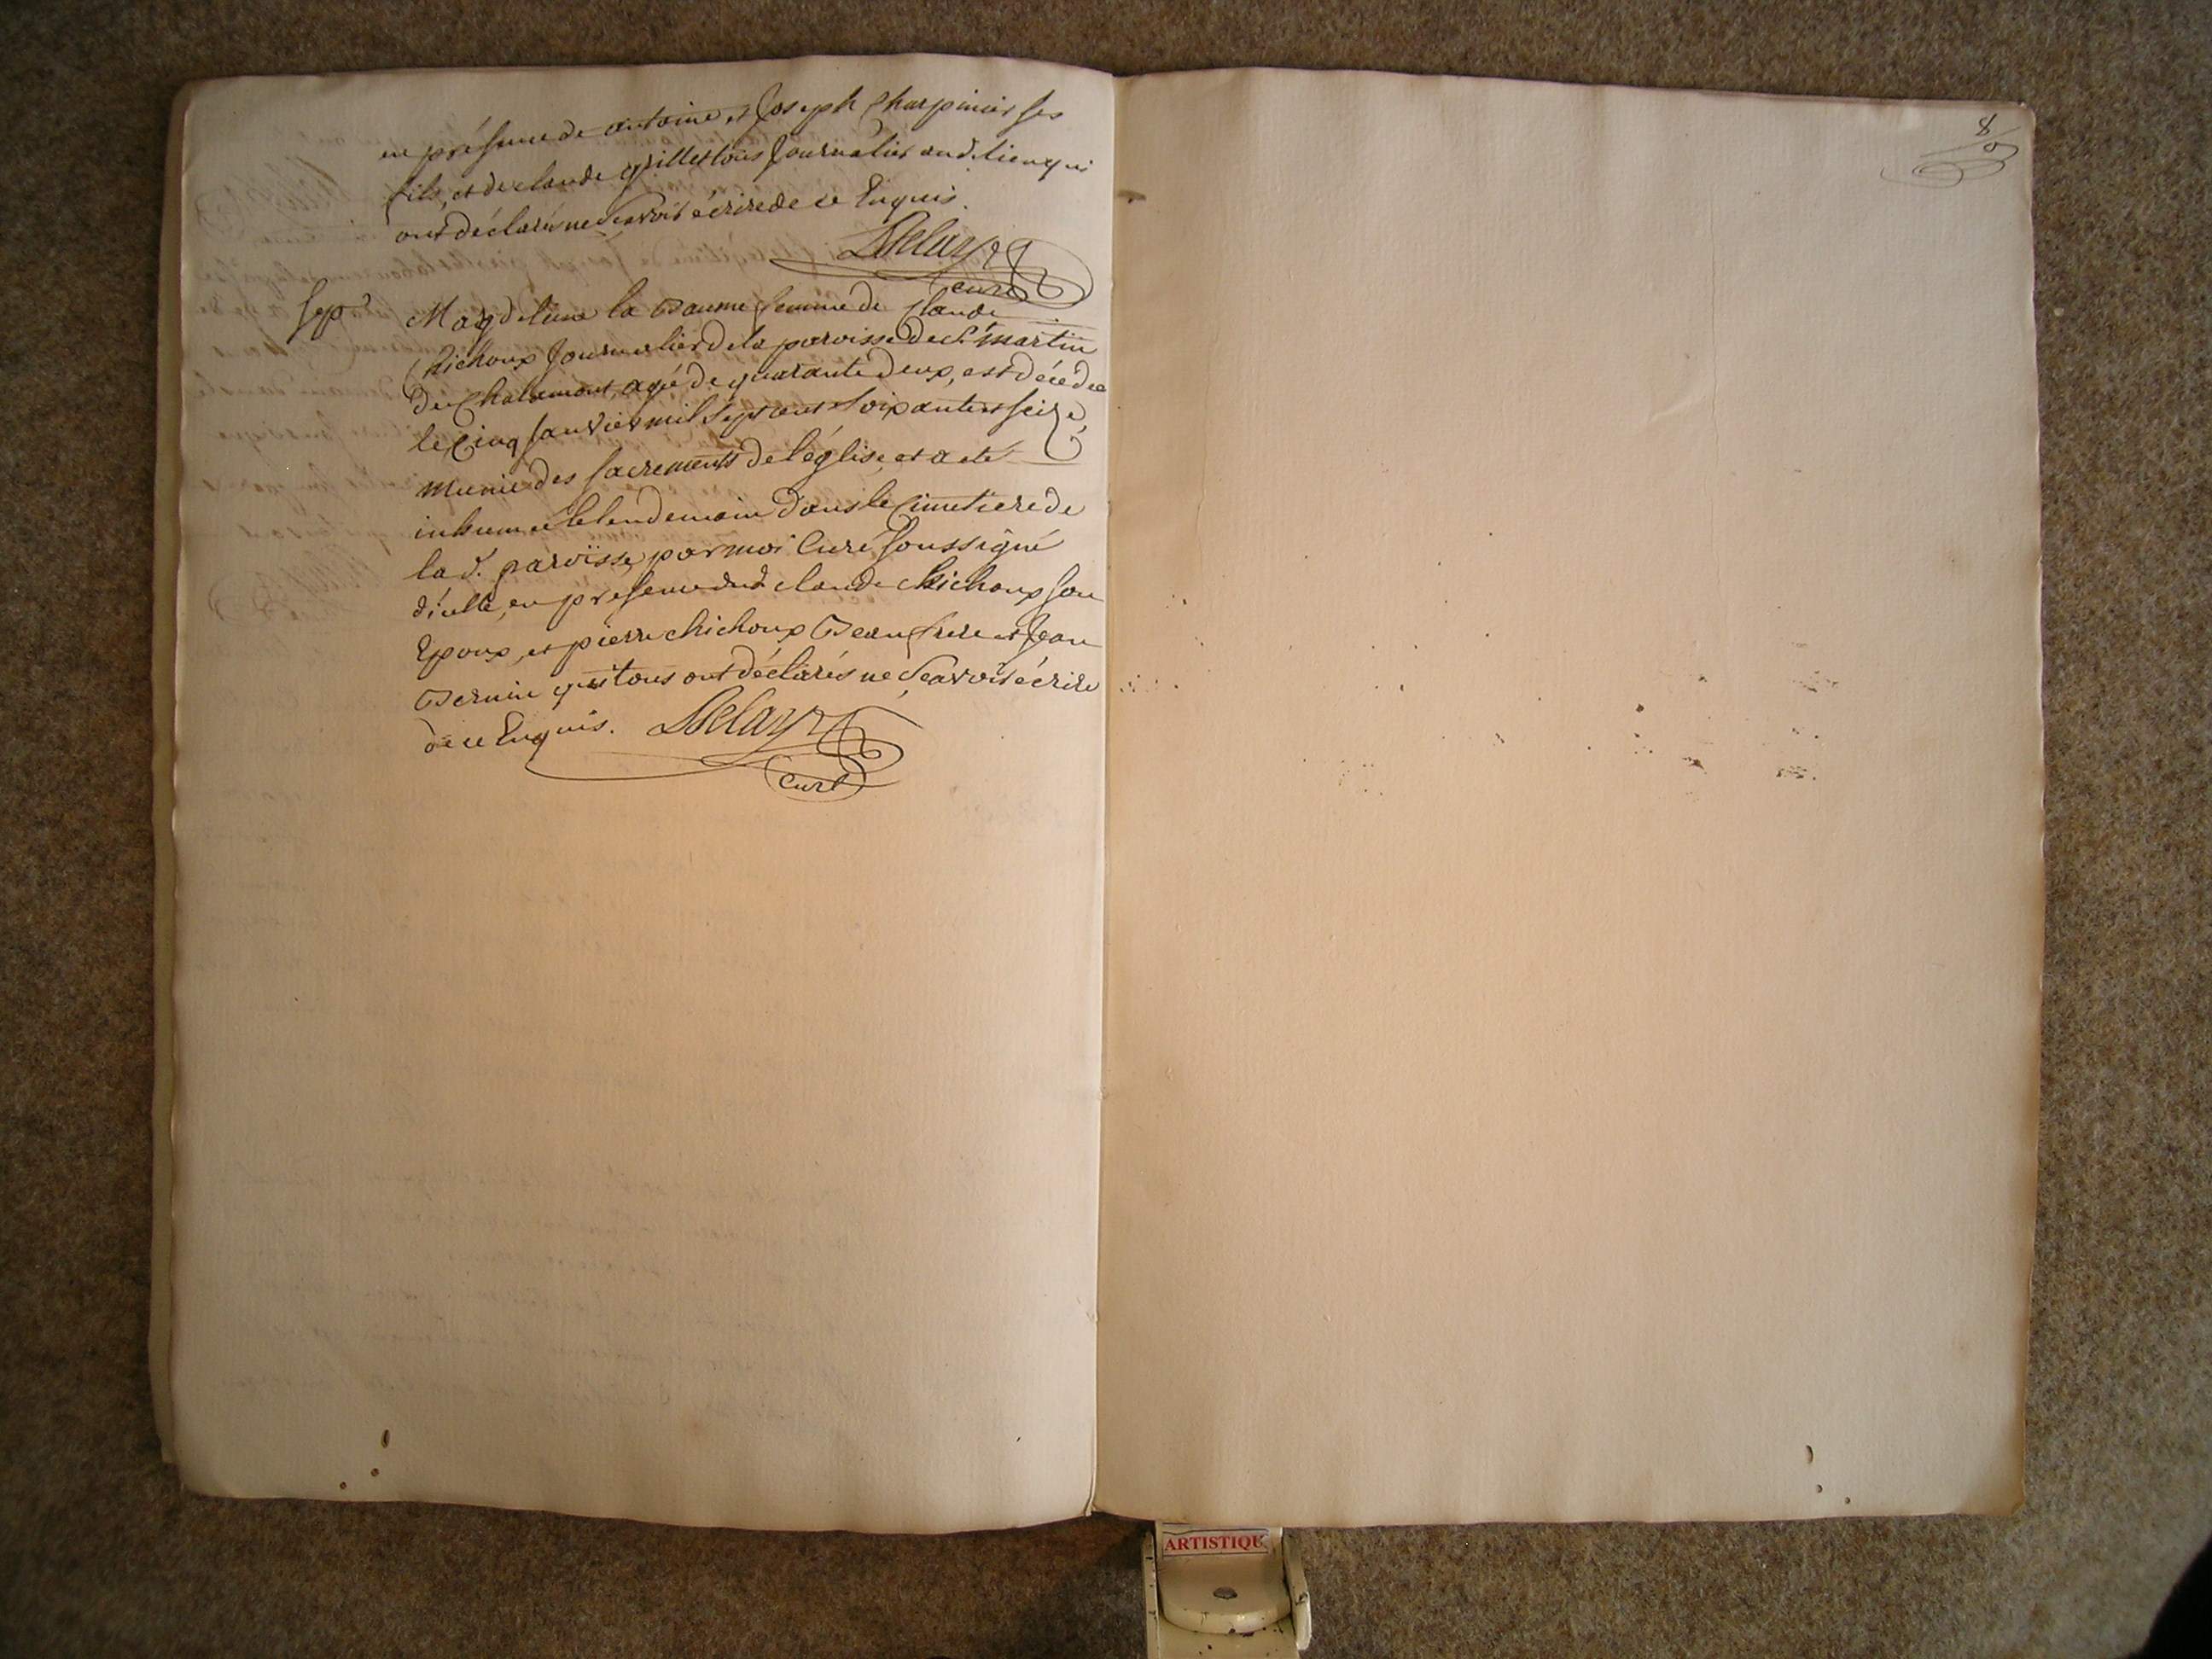 en présence de antoine et Joseph Charpinier ses
fils, et de claude grillet tous Journalier aud. lieu qui
ont déclarés ne Scavoir écrire de ce Enquis.
Delayr
curé
Sep.r
Magdeleine la Baume femme de Claude
Chichoux Journalier de la paroisse de St. martin
de Chalamont, agée de quarante deux, est décedée
le Cinq Janvier mil Sept cent Soixante et Seize,
munie des Sacrements de l'église, et a eté
inhumée le lendemain dans le Cimetiere de
lad. paroisse, par moi Curé Soussigné
d'icelle, en presence dud. claude Chichoux son
Epoux, et pierre chichoux Beau frere et Jean
Bernin qui tous ont déclarés ne Scavoir écrire
de ce Enquis. Delayr
curé
8
ARTISTIQU